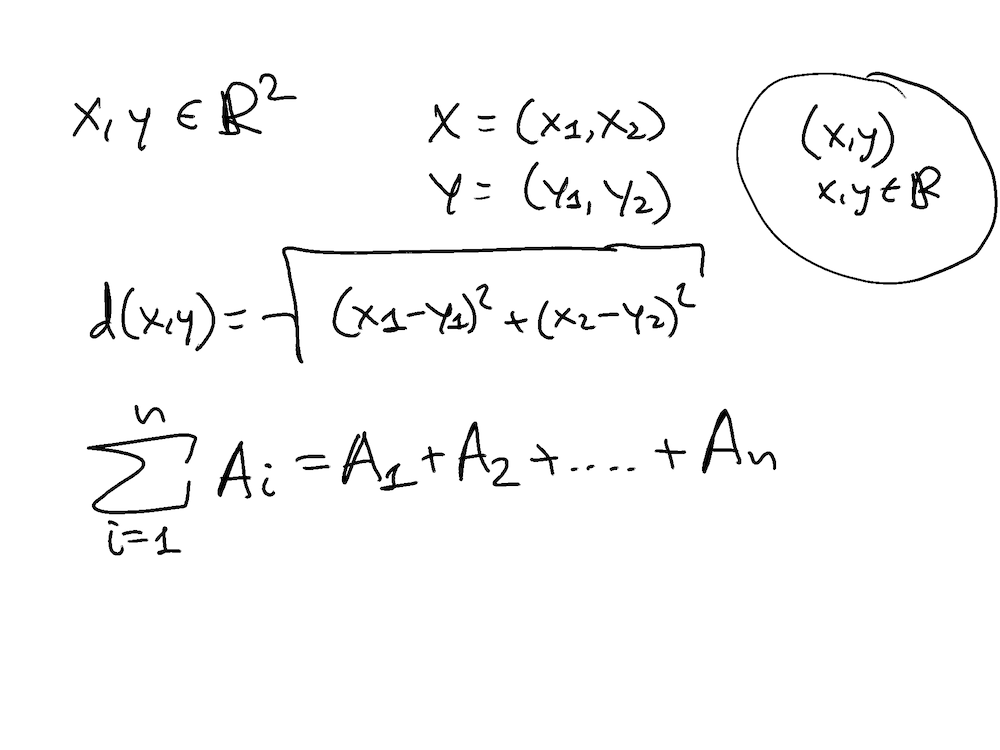 x, y ∈ ℝ²
X = (x1, x2)
Y = (Y1, Y2)
(x,y)
x,y ∈ ℝ
d(x,y) = √((x1-Y1)² + (x2-Y2)²)
∑_{i=1}^{n} Ai = A1 + A2 + .... + An